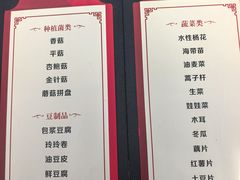 种植菌类
香菇
平菇
杏鲍菇
金针菇
蘑菇拼盘
豆制品
包浆豆腐
玲玲卷
油豆皮
鲜豆腐
蔬菜类
水性杨花
海带苗
油麦菜
蒿子杆
生菜
娃娃菜
木耳
冬瓜
藕片
红薯片
土豆片